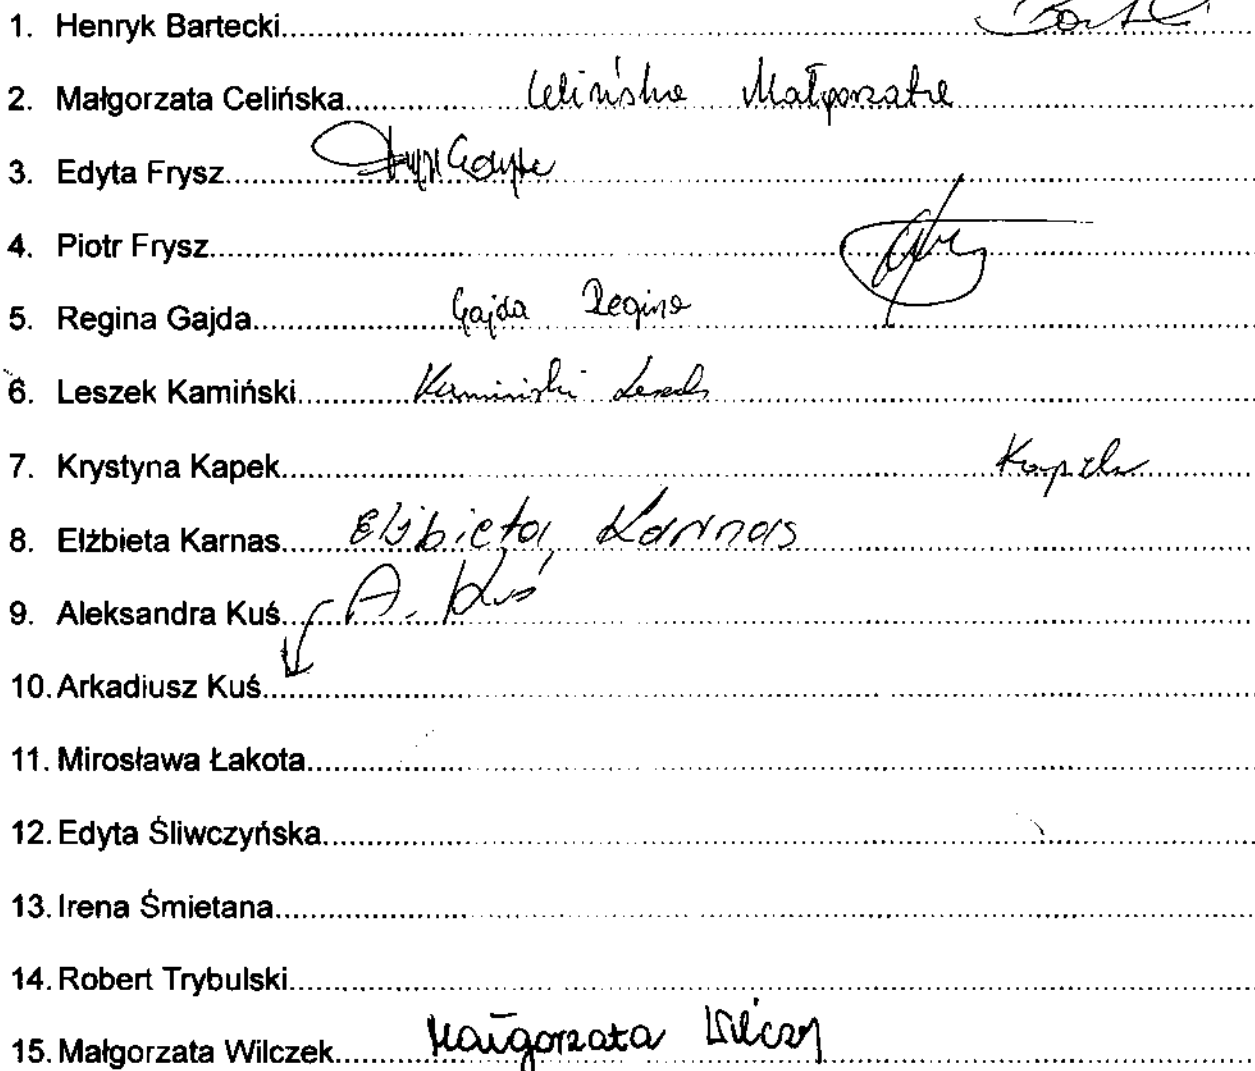 1. Henryk Bartecki
2. Małgorzata Celińska Celińska Małgorzata
3. Edyta Frysz
4. Piotr Frysz
5. Regina Gajda Gajda Regina
6. Leszek Kamiński Kamiński Leszek
7. Krystyna Kapek
8. Elżbieta Karnas Elżbieta Karnas
9. Aleksandra Kuś A. Kuś
10. Arkadiusz Kuś
11. Mirosława Łakota
12. Edyta Śliwczyńska
13. Irena Śmietana
14. Robert Trybulski
15. Małgorzata Wilczek Małgorzata